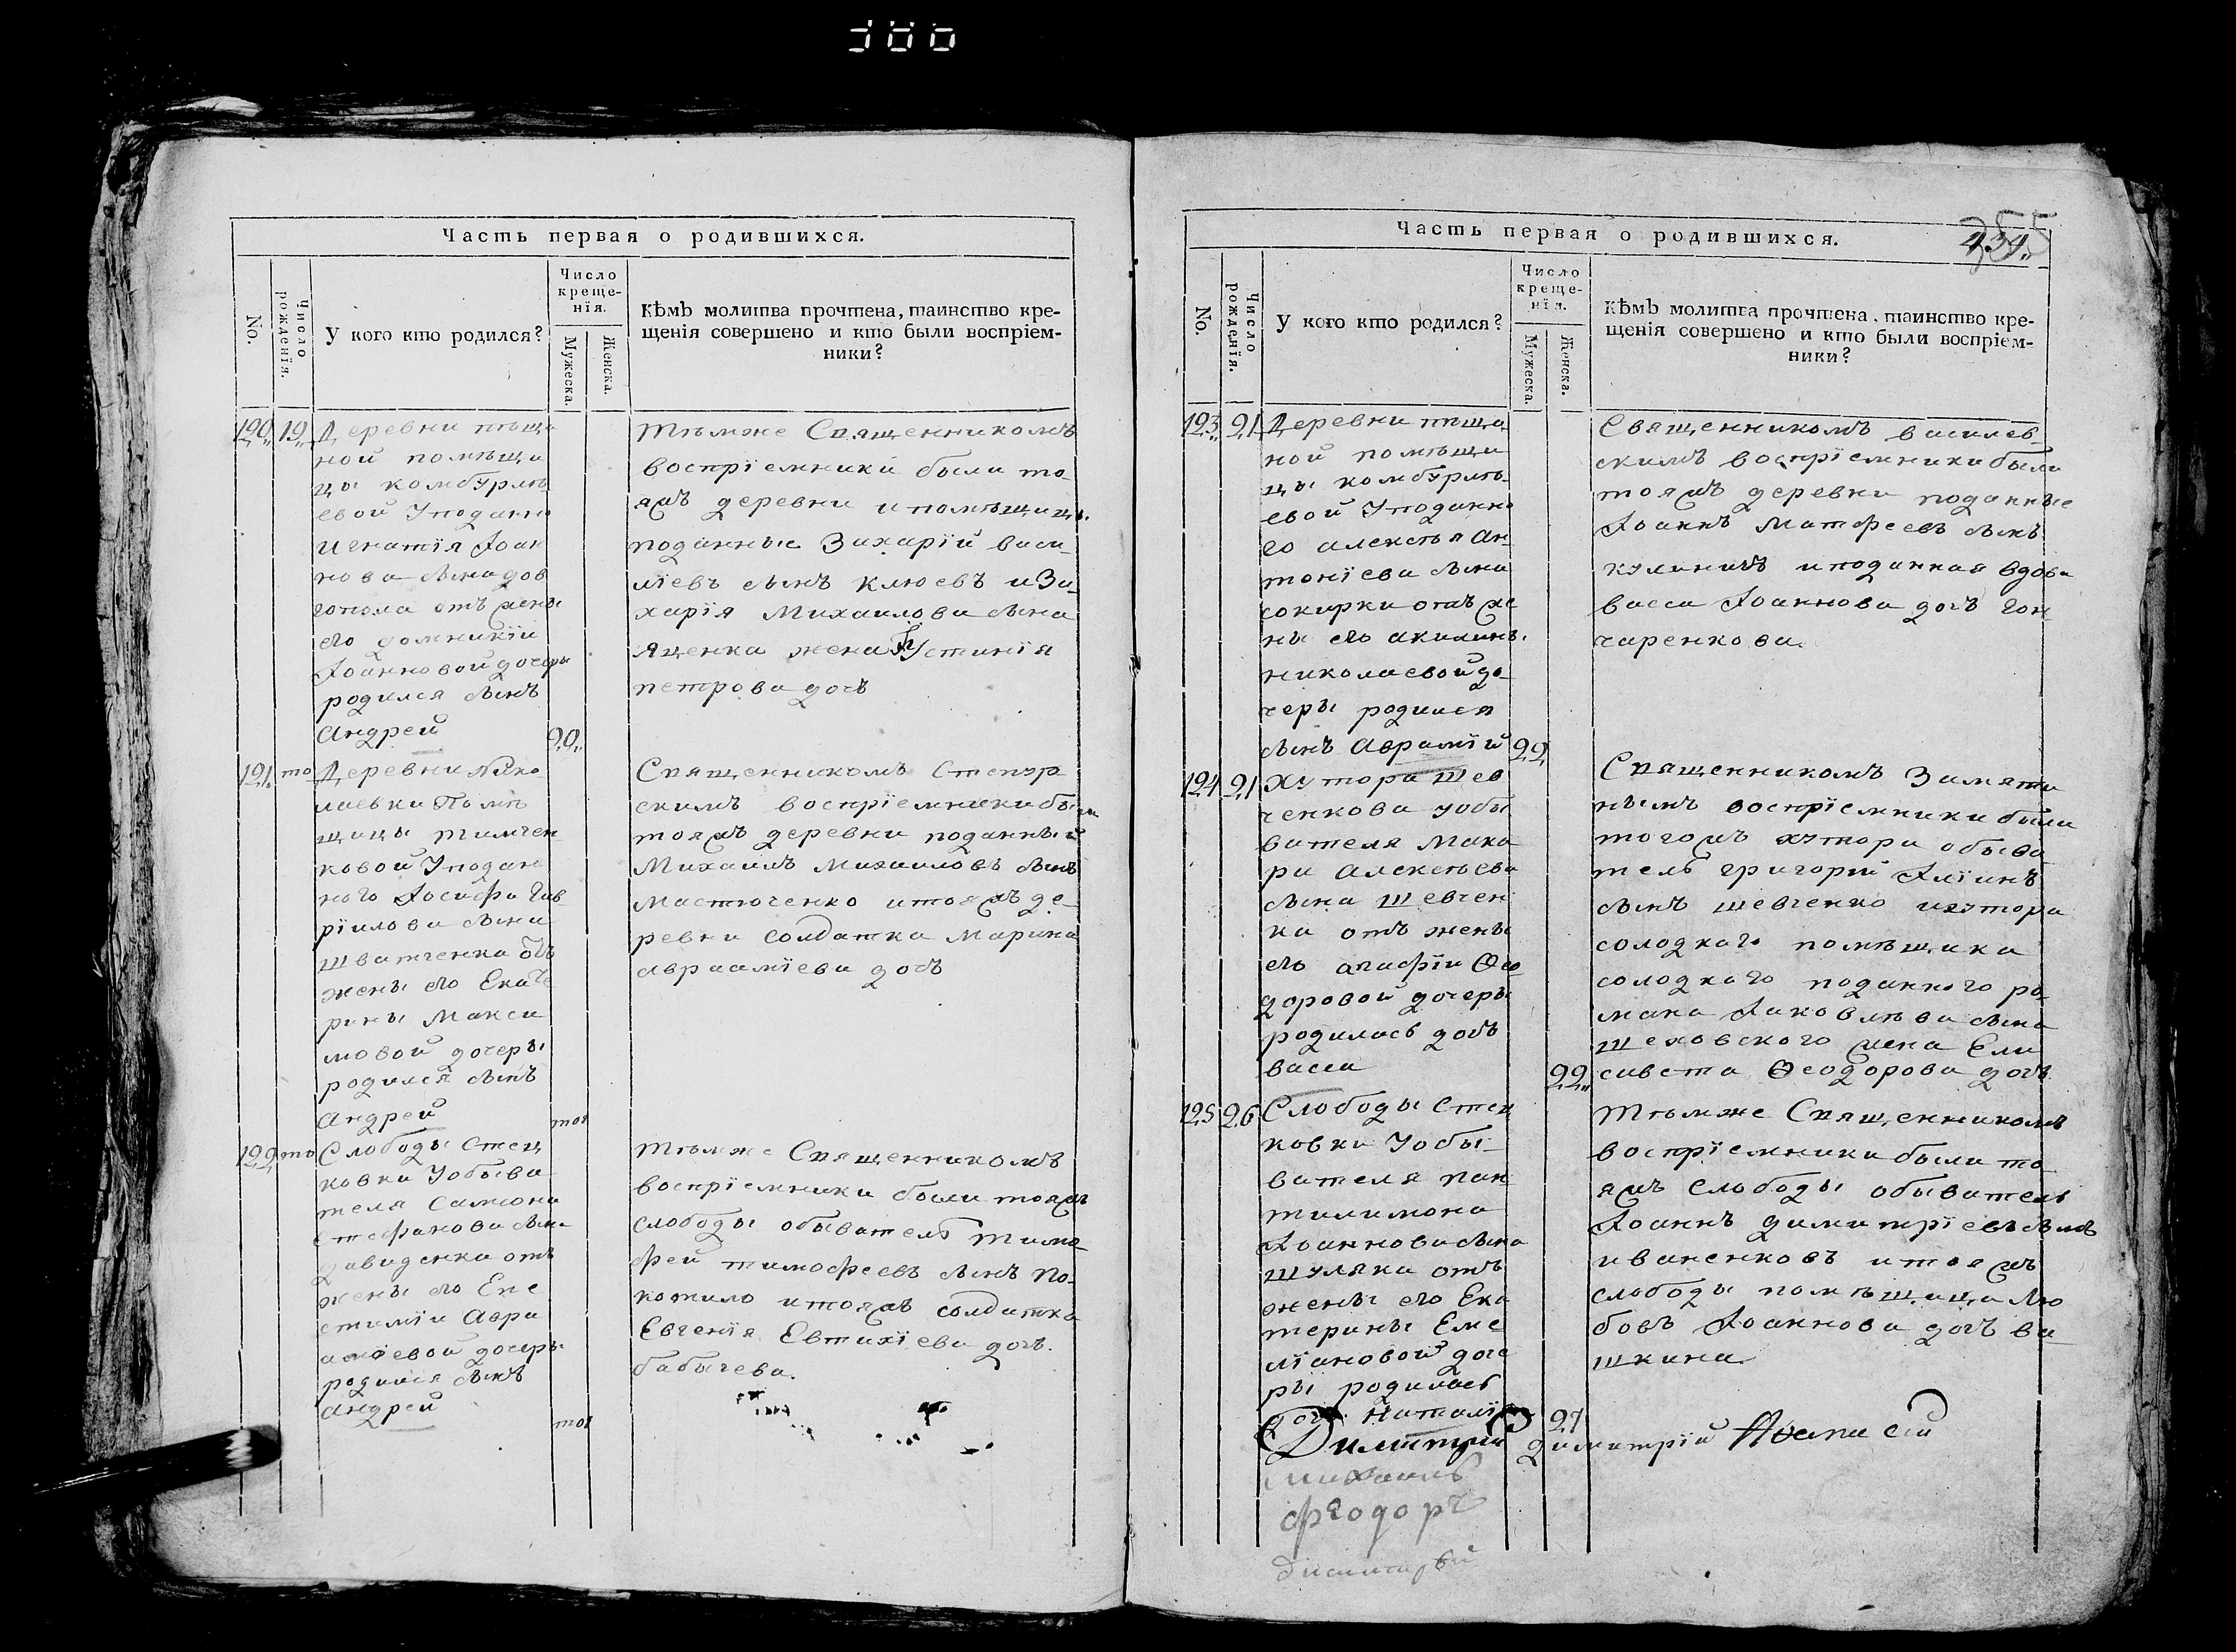 Часть первая о родившихся.
No.
Число рожденія.
У кого кто родился?
Число
креще-
нія.
Мужеска.
Женска.
Кѣмъ молитва прочтена, таинство кре-
щенія совершено и кто были воспріем-
ники?
120. 19.
Деревни пѣща
ной помѣщи
цы комбурлѣ
евой у поданно
Игнатія Іоан
нова сына дов
гопола отъ жены
его домникіи
Іоанновой дочеры
родился сынъ
Андрей 20.
тѣмже Священникомъ
воспріемники были то
яжъ деревни и помѣщицы
поданные Захарій васи
ліевъ сынъ Клюевъ и За
харія Михаилова сына
Яценка жена Устинія
петрова дочь
121. то
Деревни Нико
лаевки Помѣ
щицы тимчен
ковой у подан
ного Іосифа Гав
ріилова сына
шватченка отъ
жены его Екате
рины Макси
мовой дочеры
родился сынъ
Андрей тог
Священникомъ
скимъ воспріемники были
тояжъ деревни поданный
Михаилъ михаиловъ сынъ
мастюченко и тояжъ де
ревни солдатка марина
авраамїева дочь
122 то
Слободы Стец
ковки у обыва
теля Самсона
стефанова сына
давиденка отъ
жены его Епе
стиміи Авра
амїевой дочеры
родился сынъ
Андрей тог
тѣмже Священникомъ
воспріемники были тояжъ
слободы обыватель тимо
фей тимофеевъ сынъ По
котило и тояжъ солдатка
Евгенія Евтихіева дочь
бабичева.
Часть первая о родившихся.
No.
Число рожденія.
У кого кто родился?
Число
креще-
нія.
Мужеска.
Женска.
Кѣмъ молитва прочтена, таинство кре-
щенія совершено и кто были воспріем-
ники?
123. 21
Деревни пѣща
ной помѣщи
цы комбурлѣ
евой у поданно
го алексѣя Ан
тоніева сына
сокирки отъ же
ны его акилины
николаевой до
черы родился
сынъ Аврамїй 22
Священникомъ василев
скимъ воспріемники были
тояжъ деревни поданные
Іоаннъ Матфеевъ сынъ
кулиничъ и поданная вдова
васса Іоаннова дочъ гон
чаренкова.
124 21
Хутора шев
ченкова у обы
вателя Мака
ра алексѣева
сына шевчен
ка отъ жены
его агафіи Ѳео
доровой дочеры
родилась дочь
васса 22
Священникомъ Замяти
нымъ воспріемники были
тогожъ хутора обыва
тель григорій Иліинъ
сынъ шевченко и хутора
солодкаго помѣщика
солодкаго поданного ро
мана Іаковлѣва сына
шеховского жена Ели
савета Ѳеодорова дочъ
125 26
Слободы Стец
ковки у обы
вателя пан
тилимона
Іоаннова сына
шуляка отъ
жены его Ека
терины Еме
ліановой доче
ры родилась
дочь Наталія 27
тѣмже Священникомъ
воспріемники были то
яжъ слободы обыватель
Іоаннъ димитріевъ сынъ
иваненковъ и тояжъ
слободы помѣщица Лю
бовь Іоаннова дочь ва
шкина
Димитрій димитрій
михаилъ
феодоръ